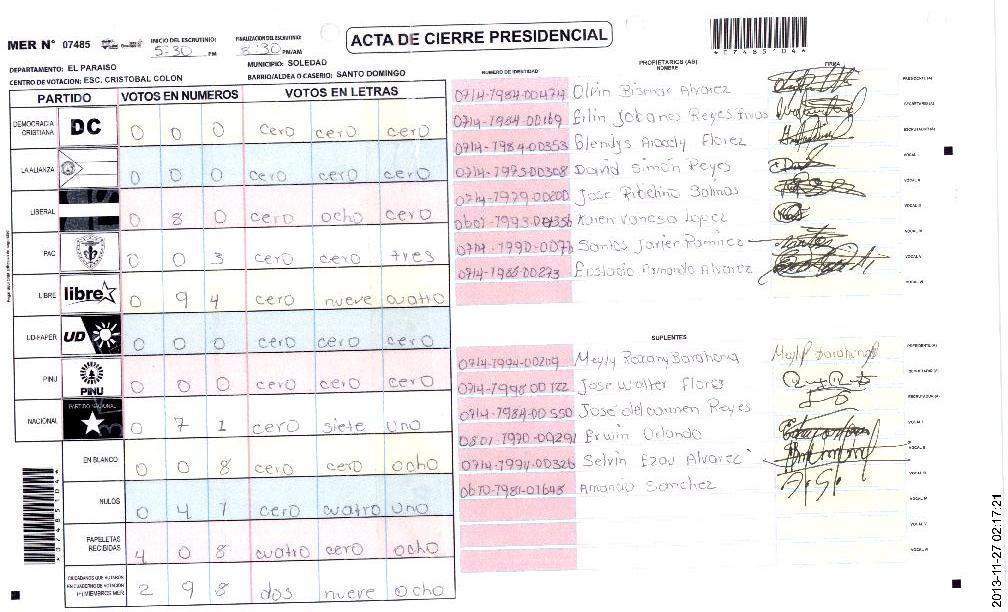 ACTA DE CIERRE PRESIDENCIAL
MER N° 07485
INICIO DEL ESCRUTINIO: 5:30 PM
FINALIZACION DEL ESCRUTINIO: 8:30 PM/AM
DEPARTAMENTO: EL PARAISO
MUNICIPIO: SOLEDAD
CENTRO DE VOTACION: ESC. CRISTOBAL COLON
BARRIO/ALDEA O CASERIO: SANTO DOMINGO
*07485104*
PARTIDO VOTOS EN NUMEROS VOTOS EN LETRAS
DEMOCRACIA CRISTIANA DC 0 0 0 cero cero cero
LA ALIANZA 0 0 0 cero cero cero
LIBERAL 0 8 0 cero ocho cero
PAC 0 0 3 cero cero tres
LIBRE libre 0 9 4 cero nueve cuatro
UD-FAPER UD 0 0 0 cero cero cero
PINU PINU 0 0 0 cero cero cero
NACIONAL PARTIDO NACIONAL 0 7 1 cero siete uno
EN BLANCO 0 0 8 cero cero ocho
NULOS 0 4 1 cero cuatro uno
PAPELETAS RECIBIDAS 4 0 8 cuatro cero ocho
CIUDADANOS QUE VOTARON EN CUADERNO DE VOTACION (+) MIEMBROS MER 2 9 8 dos nueve ocho
*07485104*
PROPIETARIOS (AS)
NUMERO DE IDENTIDAD NOMBRE FIRMA
0714-1984-00474 Olvin Bismar Alvarez PRESIDENTE (A)
0714-1984-00169 Eilin Johanes Reyes Rivas SECRETARIO (A)
0714-1984-00353 Glendys Aracely Florez ESCRUTADOR (A)
0714-1975-00308 David Simón Reyes VOCAL I
0714-1979-00200 Jose Salinas VOCAL II
0601-1993-00356 Karen Vanesa Lopez VOCAL III
0714-1990-0077 Santos Javier Ramirez VOCAL IV
0714-1986-00273 Eustacio Armando Alvarez VOCAL V
VOCAL VI
SUPLENTES
0714-1994-00209 Meyly Roxany Barahona Meyly Barahona PRESIDENTE (A)
0714-1998-00122 Jose Walter Flores SECRETARIO (A)
0714-1984-00550 José del carmen Reyes ESCRUTADOR (A)
0801-1970-00291 Erwin Orlando VOCAL I
0714-1994-00326 Selvin Esau Alvarez VOCAL II
0610-1981-01648 Amancio Sanchez VOCAL III
VOCAL IV
VOCAL V
VOCAL VI
2013-11-27 02:17:21